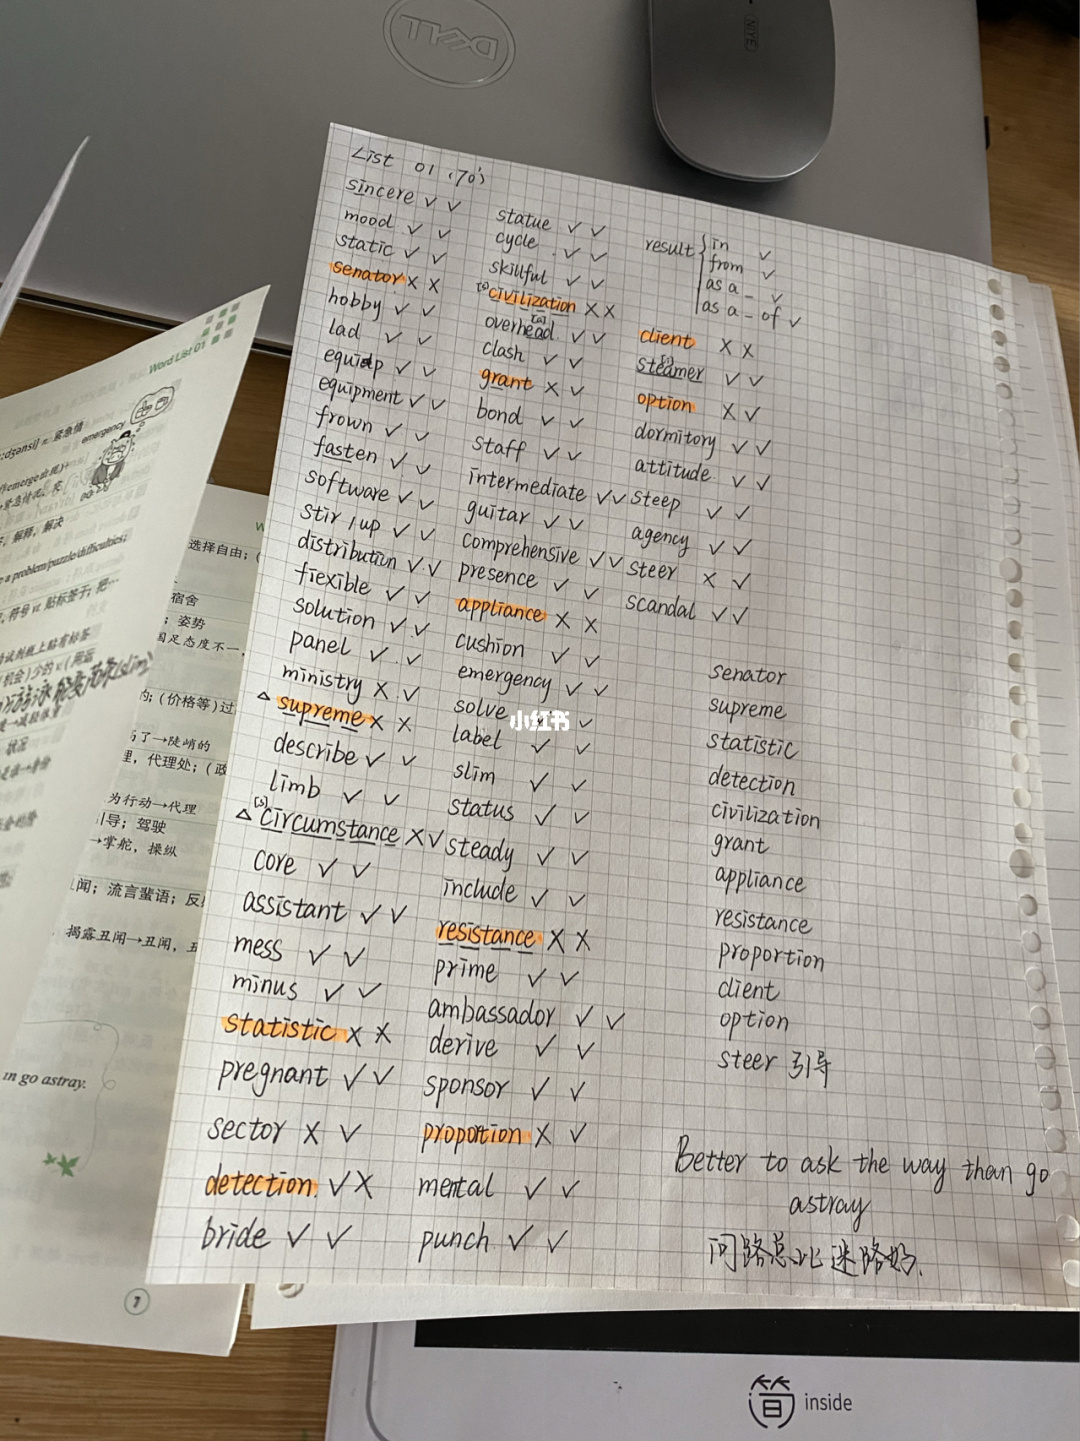 DELL
NIYE
List 01 (70's)
sincere ✓ ✓
mood ✓ ✓
static ✓ ✓
senator × ×
hobby ✓ ✓
lad ✓ ✓
equip ✓ ✓
equipment ✓ ✓
frown ✓ ✓
fasten ✓ ✓
software ✓ ✓
stir / up ✓ ✓
distribution ✓ ✓
fiexible ✓ ✓
solution ✓ ✓
panel ✓ ✓
ministry × ✓
△ supreme × ×
describe ✓ ✓
limb ✓ ✓
[s]
△ circumstance × ✓
core ✓ ✓
assistant ✓ ✓
mess ✓ ✓
minus ✓ ✓
statistic × ×
pregnant ✓ ✓
sector × ✓
detection ✓ ×
bride ✓ ✓
statue ✓ ✓
cycle ✓ ✓
skillful ✓ ✓
[s] civilization × ×
overhead ✓ ✓
clash ✓ ✓
grant × ✓
bond ✓ ✓
staff ✓ ✓
intermediate ✓ ✓
guitar ✓ ✓
comprehensive ✓ ✓
presence ✓ ✓
appliance × ×
cushion ✓ ✓
emergency ✓ ✓
solve ✓
小红书
label ✓ ✓
slim ✓ ✓
status ✓ ✓
steady ✓ ✓
include ✓ ✓
resistance × ×
prime ✓ ✓
ambassador ✓ ✓
derive ✓ ✓
sponsor ✓ ✓
proportion × ✓
mental ✓ ✓
punch ✓ ✓
result { in ✓
from ✓
as a _ ✓
as a _ of ✓
client × ×
steamer ✓ ✓
option × ✓
dormitory ✓ ✓
attitude ✓ ✓
steep ✓ ✓
agency ✓ ✓
steer × ✓
scandal ✓ ✓
senator
supreme
statistic
detection
civilization
grant
appliance
resistance
proportion
client
option
steer 引导
Better to ask the way than go
astray
问路总比迷路好.
Word List 01
紧急情
emergency
解释，解决
a problem/puzzle/difficulties;
选择自由；(
宿舍
；姿势
足态度不一，
；(价格等)过
了→陡峭的
，代理处；(政
为行动→代理
引导；驾驶
→掌舵，操纵
闻；流言蜚语；反
揭露丑闻→丑闻，
in go astray.
1
简 inside